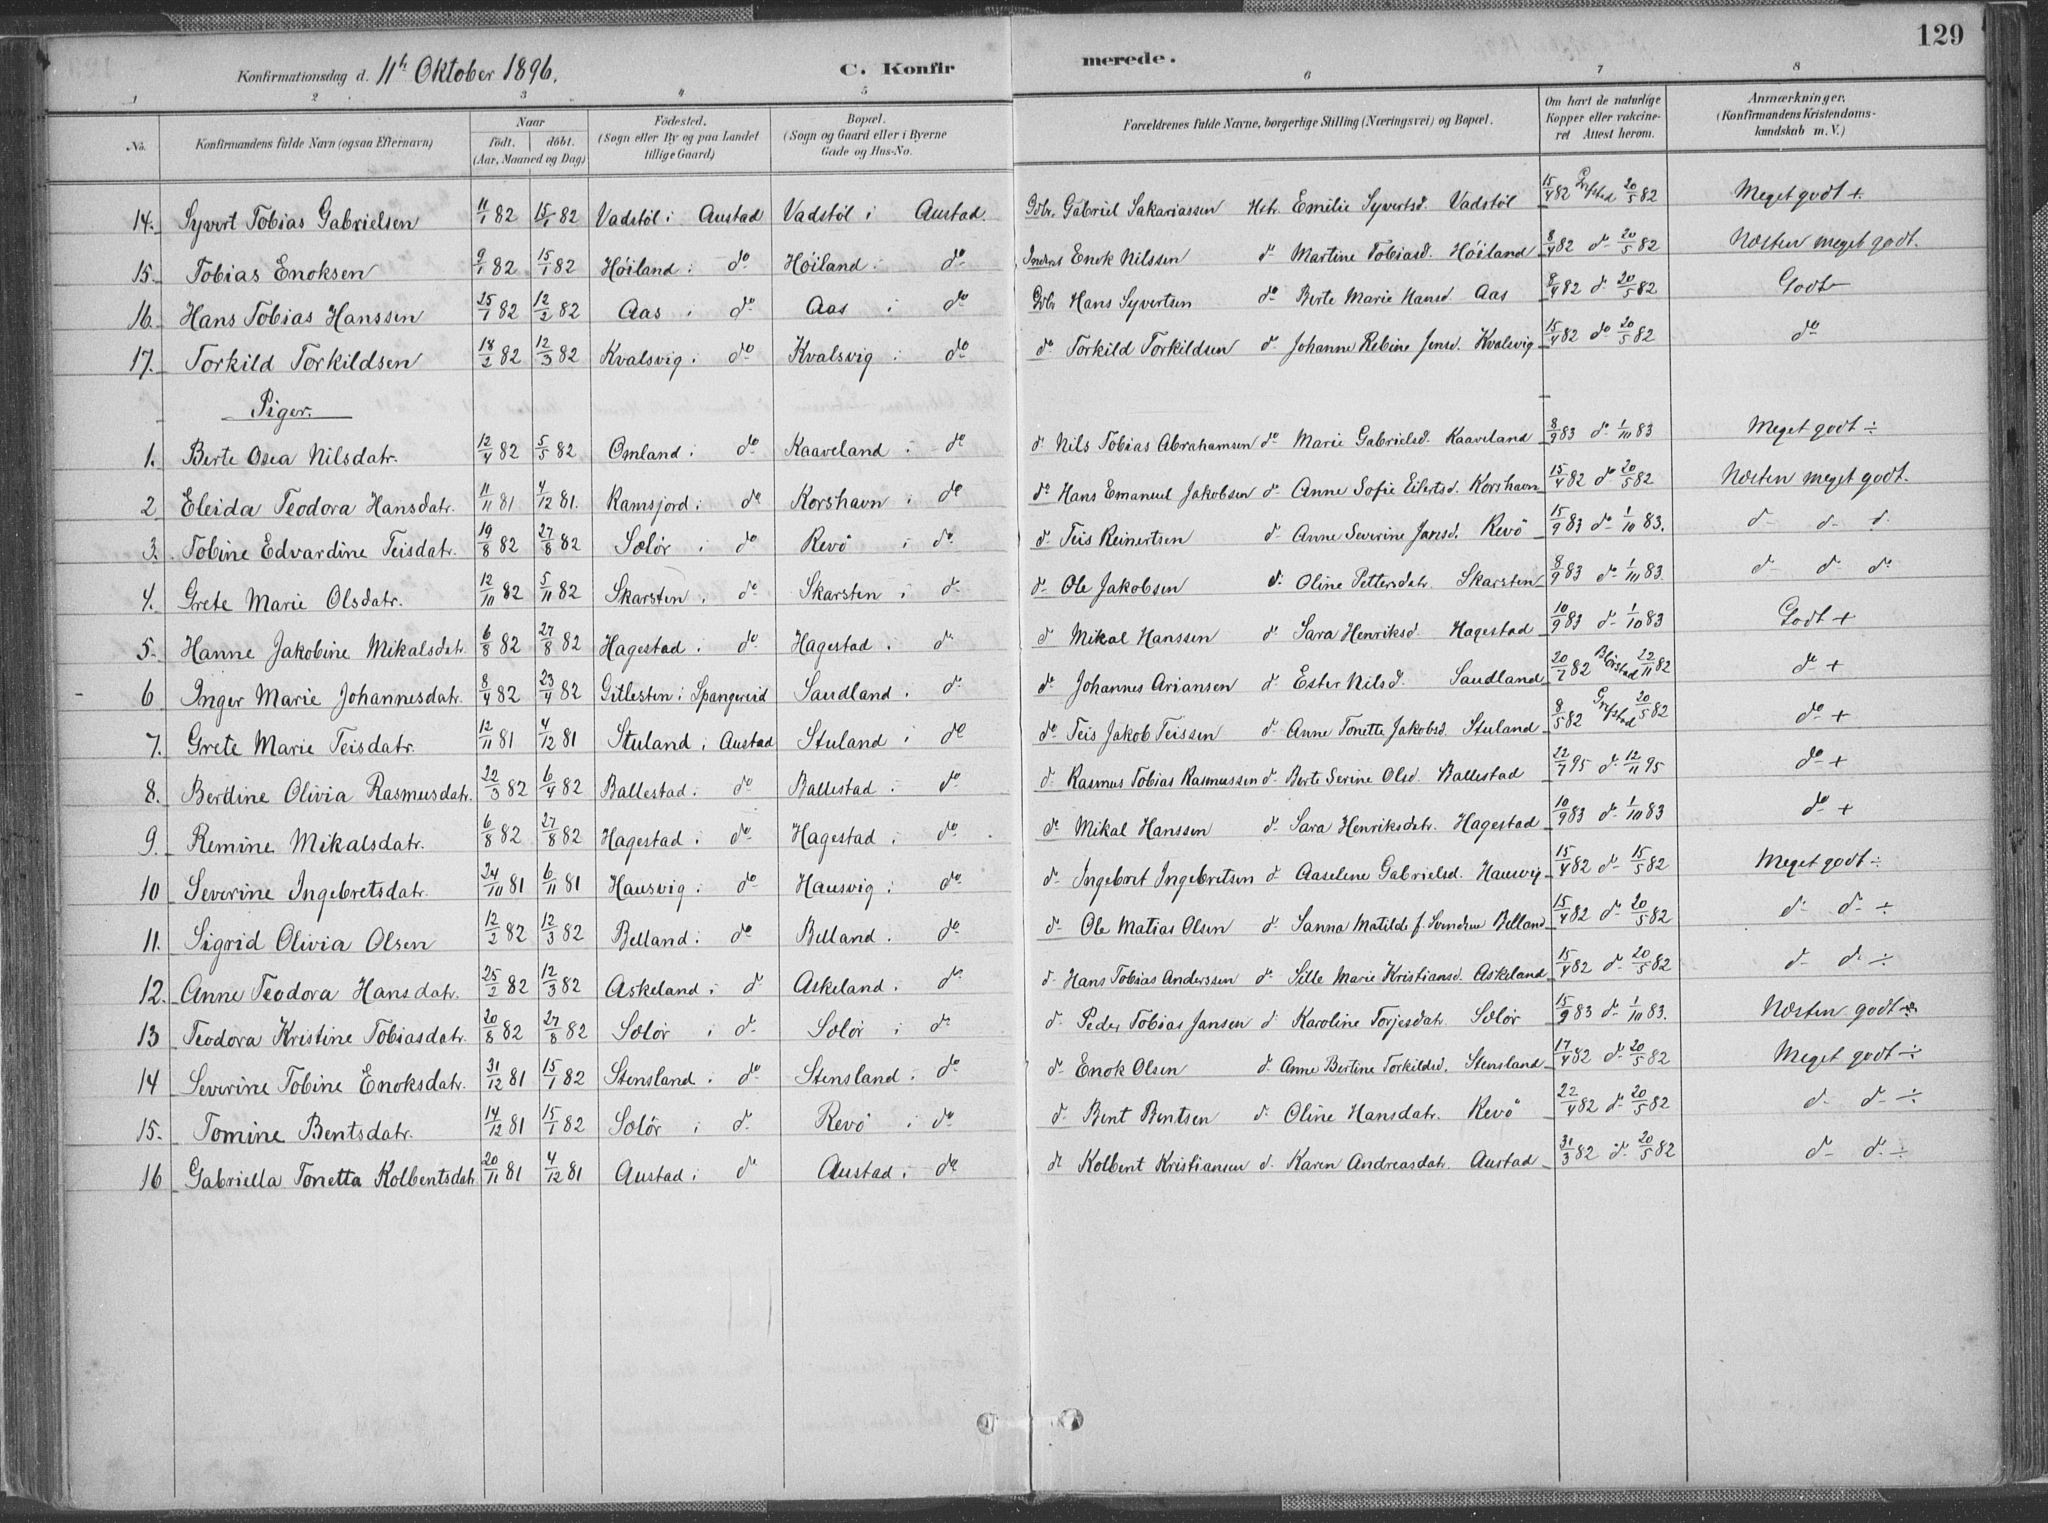 129
Konfirmationsdag d. 11te Oktober 1896. C. Konfirmerede.
1 2 3 4 5 6 7 8
No. Konfirmandens fulde Navn (ogsaa Efternavn) Naar født. døbt. (Aar, Maaned og Dag) Fødested. (Sogn eller By og paa Landet tillige Gaard) Bopæl. (Sogn og Gaard eller i Byerne Gade og Hus-No. Forældrenes fulde Navne, borgerlige Stilling (Næringsvei) og Bopæl. Om havt de naturlige Kopper eller vakcineret Attest herom. Anmærkninger. (Konfirmandens Kristendomskundskab m. V.)
14. Syvert Tobias Gabrielsen 11/1 82 15/1 82 Vadstøl i Austad Vadstøl i Austad. Gbr. Gabriel Sakariassen Hstr. Emilie Syvertsd. Vadstøl 15/4 82 Grefstad 20/5 82 Meget godt +
15. Tobias Enoksen 9/1 82 15/1 82 Høiland i do Høiland i do Enok Nilssen do Martine Tobiasd. Høiland 8/4 82 do 20/5 82 Næsten meget godt.
16. Hans Tobias Hanssen 25/1 82 12/2 82 Aas i do Aas i do Gbr Hans Syvertsen do Berte Marie Hansd. Aas 8/4 82 do 20/5 82 Godt
17. Torkild Torkildsen 18/2 82 12/3 82 Kvalsvig i do Kvalsvig i do do Torkild Torkildsen do Johanne Rebine Jensd. Kvalsvig 15/4 82 do 20/5 82 do
Piger.
1. Berte Osea Nilsdatr. 12/4 82 5/5 82 Omland i do Kaaveland i do do Nils Tobias Abrahamsen do Marie Gabrielsd. Kaaveland 8/9 83 do 1/10 83 Meget godt ÷
2 Eleida Teodora Hansdatr. 11/11 81 4/12 81. Ramsjord i do Korshavn i do do Hans Emanuel Jakobsen do Anne Sofie Eilertsd. Korshavn 15/4 82 do 20/5 82 Næsten meget godt.
3. Tobine Edvardine Teisdatr. 19/8 82 27/8 82 Sælør i do Revø i do do Teis Reinertsen do Anne Severine Jansd. Revö 15/9 83 do 1/10 83. do do do
4. Grete Marie Olsdatr. 12/10 82 5/11 82 Skarsten i do Skarsten i do do Ole Jakobsen do Oline Pettersdatr. Skarsten 8/9 83 do 1/10 83. do do do
5. Hanne Jakobine Mikalsdatr. 6/8 82 27/8 82 Hagestad i do Hagestad i do do Mikal Hanssen do Sara Henriksd. Hagestad 10/9 83 do 1/10 83 Godt +
6 Inger Marie Johannesdatr. 8/4 82 23/4 82 Gitlesten i Spangereid Saudland i do do Johannes Ariansen do Ester Nilsd. Saudland 20/7 82 22/11 82 do +
7. Grete Marie Teisdatr. 12/11 81 4/12 81 Stuland i Austad Stuland i do do Teis Jakob Teissen do Anne Tonette Jakobsd. Stuland 8/5 82 Grefstad 20/5 82 do +
8. Berdine Olivia Rasmusdatr. 22/3 82 6/4 82 Ballestad i do Ballestad i do do Rasmus Tobias Rasmussen do Berte Serine Olsd. Ballestad 22/7 95 do 12/11 95 do +
9. Remine Mikalsdatr. 6/8 82 27/8 82 Hagestad i do Hagestad i do do Mikal Hanssen do Sara Henriksdatr. Hagestad 10/9 83 do 1/10 83 do +
10 Severine Ingebretsdatr. 24/10 81 6/11 81 Hausvig i do Hausvig i do do Ingebret Ingebretsen do Aaselene Gabrielsd. Hausvig 15/4 82 do 15/5 82 Meget godt ÷
11. Sigrid Olivia Olsen 12/2 82 12/3 82 Belland i do Belland i do do Ole Matias Olsen do Sanna Matilde f. Svendsen Belland 15/4 82 do 20/5 82 do do ÷
12. Anne Teodora Hansdatr. 25/2 82 12/3 82 Askeland i do Askeland i do do Hans Tobias Anderssen do Sille Marie Kristiansd. Askeland 15/4 82 do 20/5 82 do do ÷
13 Teodora Kristine Tobiasdatr. 20/8 82 27/8 82 Sælør i do Sælør i do do Peder Tobias Jansen do Karoline Torjesdatr. Sælør 15/9 83 do 1/10 83. Næsten godt
14 Severine Tobine Enoksdatr. 31/12 81 15/1 82 Stensland i do Stensland i do do Enok Olsen do Anne Bertine Torkildsd. Stensland 17/4 82 do 20/5 82 Meget godt ÷
15. Tomine Bentsdatr. 14/12 81 15/1 82 Sælør i do Revø i do do Bent Bentsen do Oline Hansdatr. Revö 22/4 82 do 20/5 82 do do ÷
16 Gabriella Tonetta Kolbentsdatr 20/11 81 4/12 81 Austad i do Austad i do do Kolbent Kristiansen do Karen Andreasdatr. Austad 31/3 82 do 20/5 82 do do ÷